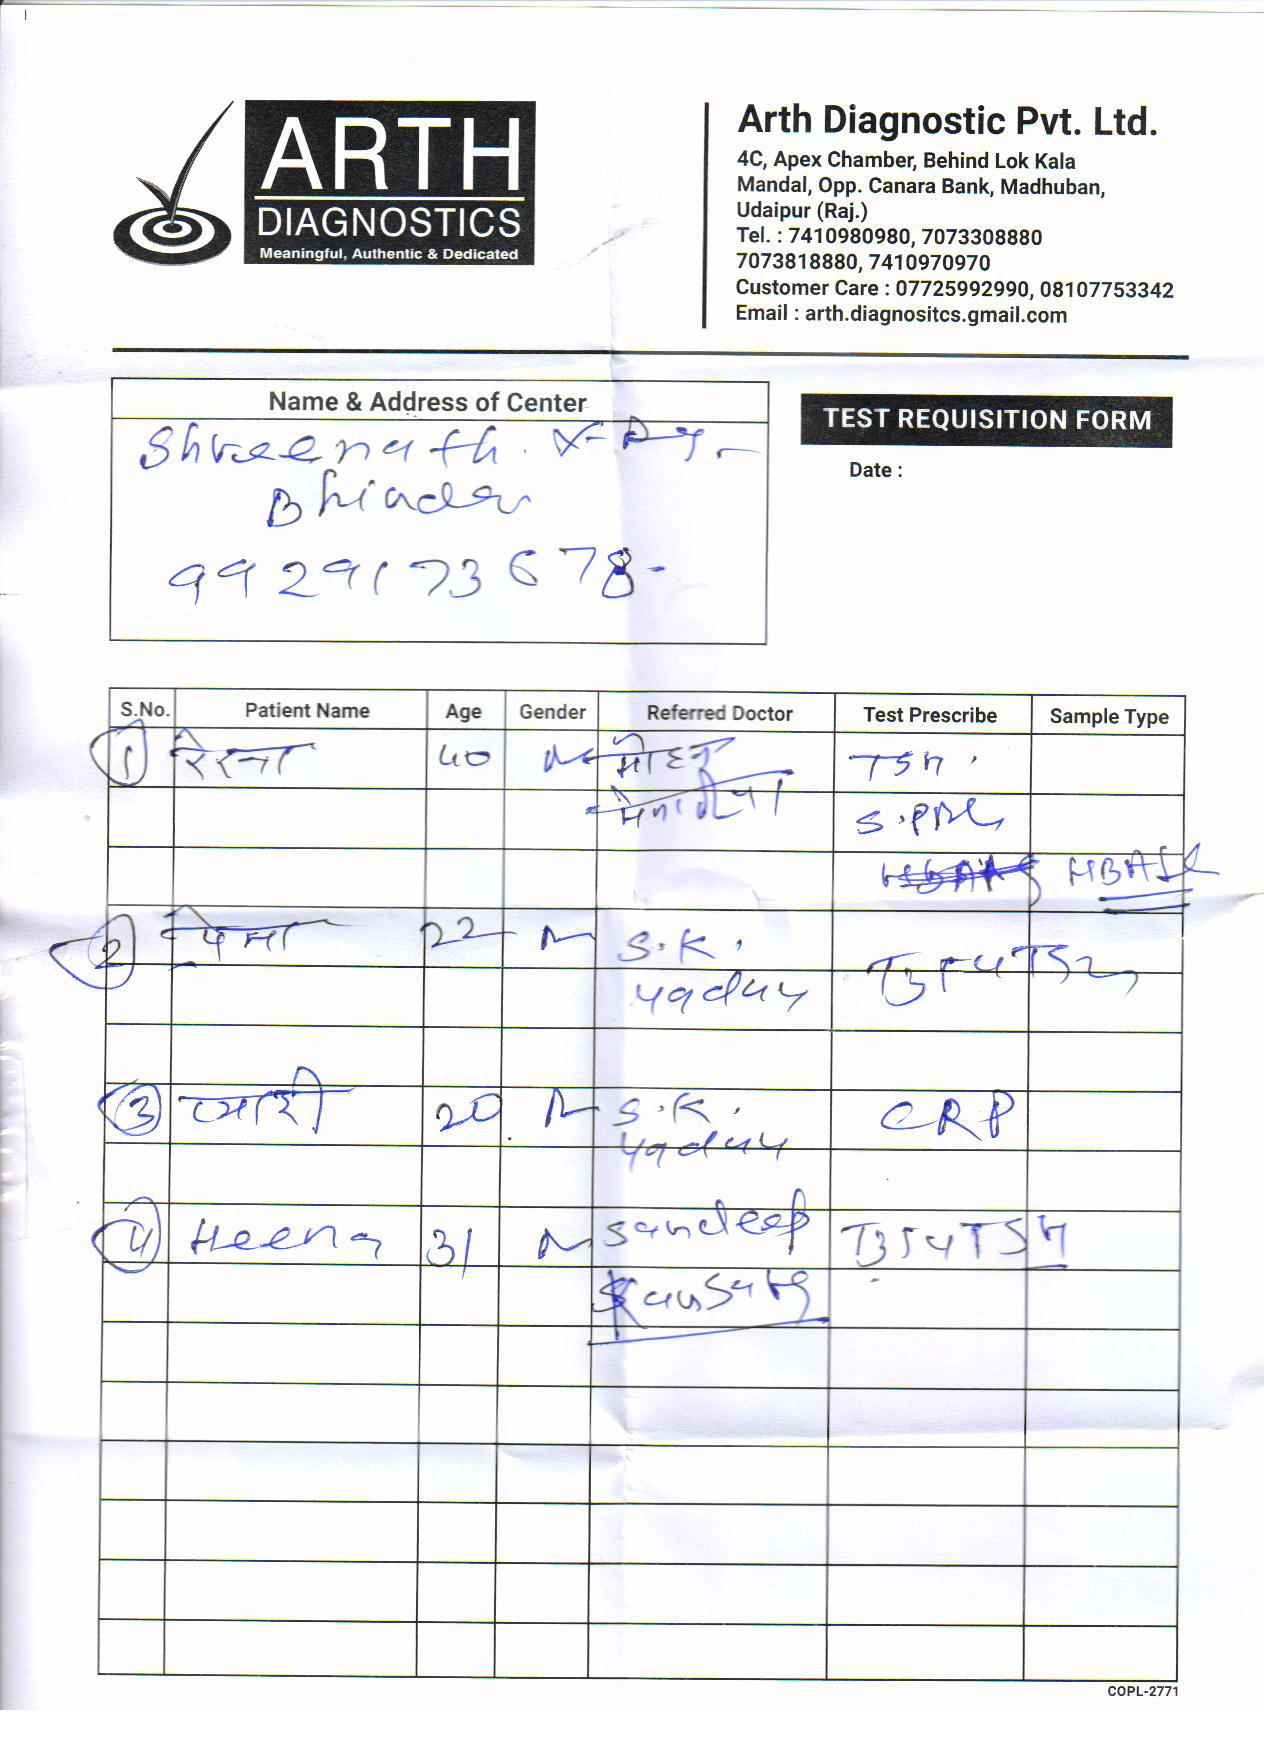 ARTH
DIAGNOSTICS
Meaningful, Authentic & Dedicated
Arth Diagnostic Pvt. Ltd.
4C, Apex Chamber, Behind Lok Kala
Mandal, Opp. Canara Bank, Madhuban,
Udaipur (Raj.)
Tel. : 7410980980, 7073308880
7073818880, 7410970970
Customer Care : 07725992990, 08107753342
Email : arth.diagnositcs.gmail.com
Name & Address of Center
Shreenath. X-Ray
Bhinder
9929173678-
TEST REQUISITION FORM
Date :
S.No. Patient Name Age Gender Referred Doctor Test Prescribe Sample Type
1 40 मोहन TSH
S.PRL
HBA1c
2 पेमा 22 S.K. T3T4TSH
yaduv
3 20 S.K. CRP
yaduv
4 Heena 31 Sandeep T3T4TSH
COPL-2771